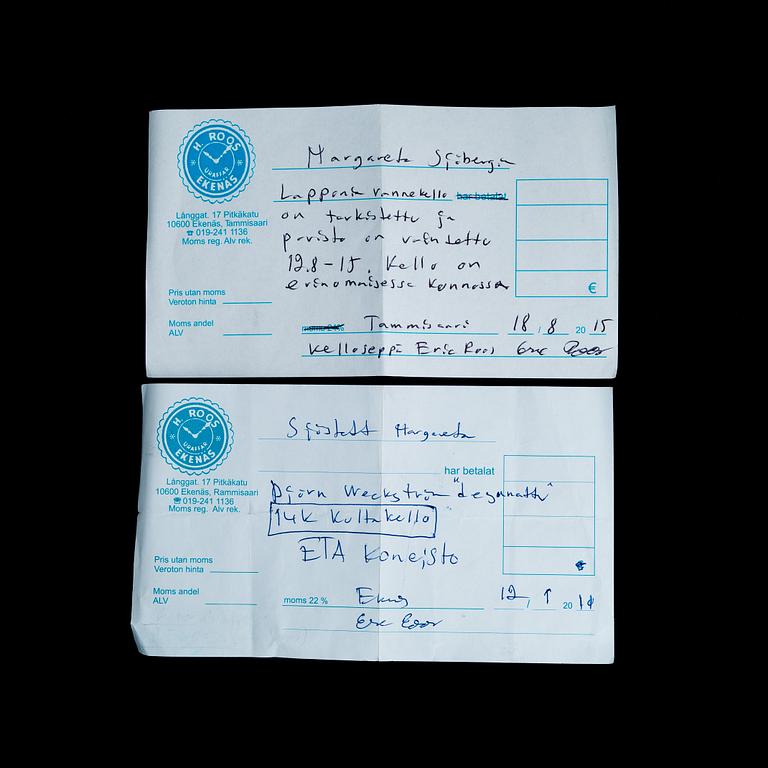 H. ROOS
URAFFÄR
EKENÄS
Långgat. 17 Pitkäkatu
10600 Ekenäs, Tammisaari
☎ 019-241 1136
Moms reg. Alv rek.
Margareta Sjöbergin
Lapponia rannekello har betalat
on tarkistettu ja
paristo on vaihdettu
12.8-15. Kello on
erinomaisessa kunnossa
€
Pris utan moms
Veroton hinta
Moms andel
ALV
Tammisaari 18 / 8 20 15
Kelloseppä Eric Roos Eric Roos
H. ROOS
URAFFÄR
EKENÄS
Långgat. 17 Pitkäkatu
10600 Ekenäs, Rammisaari
☎ 019-241 1136
Moms reg. Alv rek.
Margareta
har betalat
Björn Weckström
14K Kultakello
ETA Koneisto
Pris utan moms
Veroton hinta
Moms andel
ALV
moms 22 % 12 / 20
Eric Roos